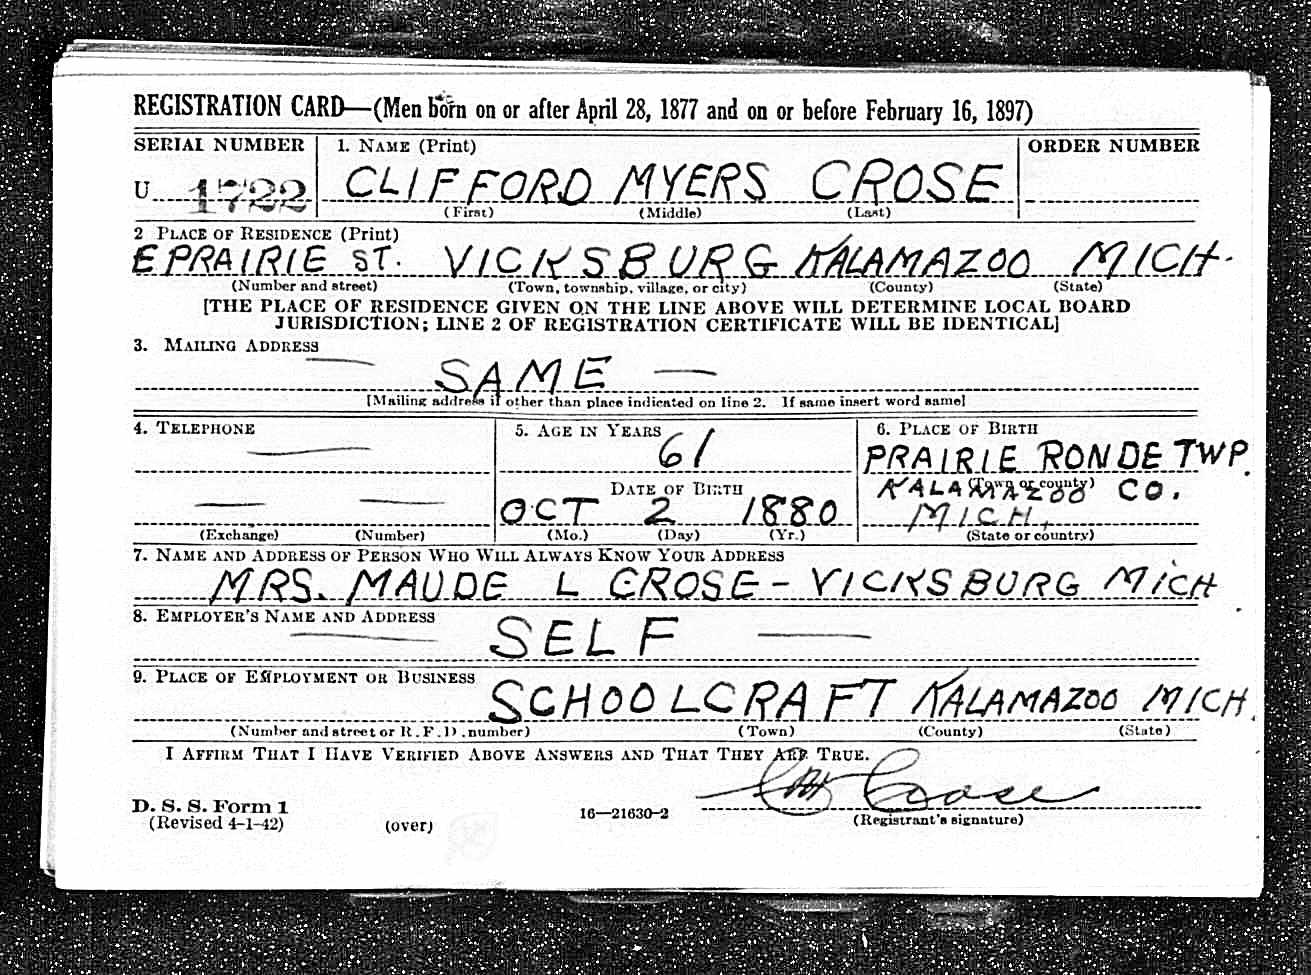 REGISTRATION CARD—(Men born on or after April 28, 1877 and on or before February 16, 1897)
SERIAL NUMBER 1. NAME (Print) ORDER NUMBER
U 1722 CLIFFORD MYERS CROSE
(First) (Middle) (Last)
2 PLACE OF RESIDENCE (Print)
E PRAIRIE ST. VICKSBURG KALAMAZOO MICH.
(Number and street) (Town, township, village, or city) (County) (State)
[THE PLACE OF RESIDENCE GIVEN ON THE LINE ABOVE WILL DETERMINE LOCAL BOARD
JURISDICTION; LINE 2 OF REGISTRATION CERTIFICATE WILL BE IDENTICAL]
3. MAILING ADDRESS
— SAME —
[Mailing address if other than place indicated on line 2. If same insert word same]
4. TELEPHONE 5. AGE IN YEARS 6. PLACE OF BIRTH
— 61 PRAIRIE RONDE TWP.
DATE OF BIRTH (Town or county)
KALAMAZOO CO.
— — OCT 2 1880 MICH.
(Exchange) (Number) (Mo.) (Day) (Yr.) (State or country)
7. NAME AND ADDRESS OF PERSON WHO WILL ALWAYS KNOW YOUR ADDRESS
MRS. MAUDE L CROSE - VICKSBURG MICH
8. EMPLOYER'S NAME AND ADDRESS
— SELF —
9. PLACE OF EMPLOYMENT OR BUSINESS
SCHOOLCRAFT KALAMAZOO MICH.
(Number and street or R.F.D. number) (Town) (County) (State)
I AFFIRM THAT I HAVE VERIFIED ABOVE ANSWERS AND THAT THEY ARE TRUE.
Crose
D. S. S. Form 1
(Revised 4-1-42) (over) 16—21630-2 (Registrant's signature)